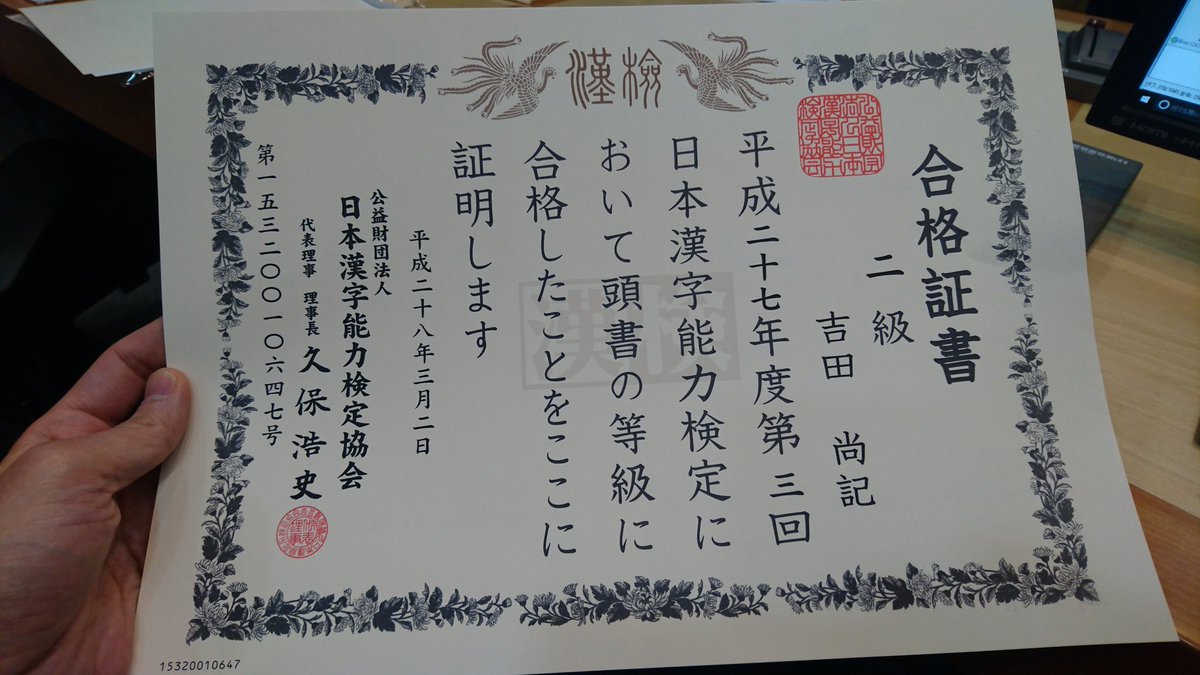 漢検
合格証書
二級
吉田 尚記
平成二十七年度第三回
日本漢字能力検定に
おいて頭書の等級に
合格したことをここに
証明します
平成二十八年三月二日
公益財団法人
日本漢字能力検定協会
代表理事 理事長 久保浩史
第一五三二〇〇一〇六四七号
15320010647
漢検